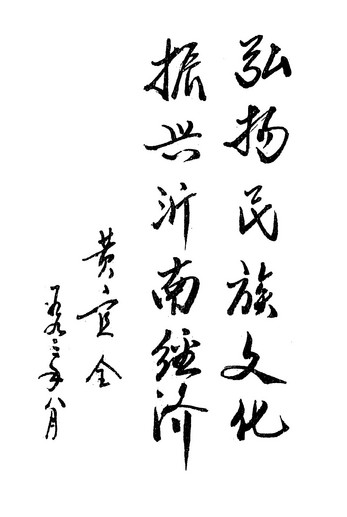 弘扬民族文化
振兴沂南经济
黄宜全
一九九二年八月